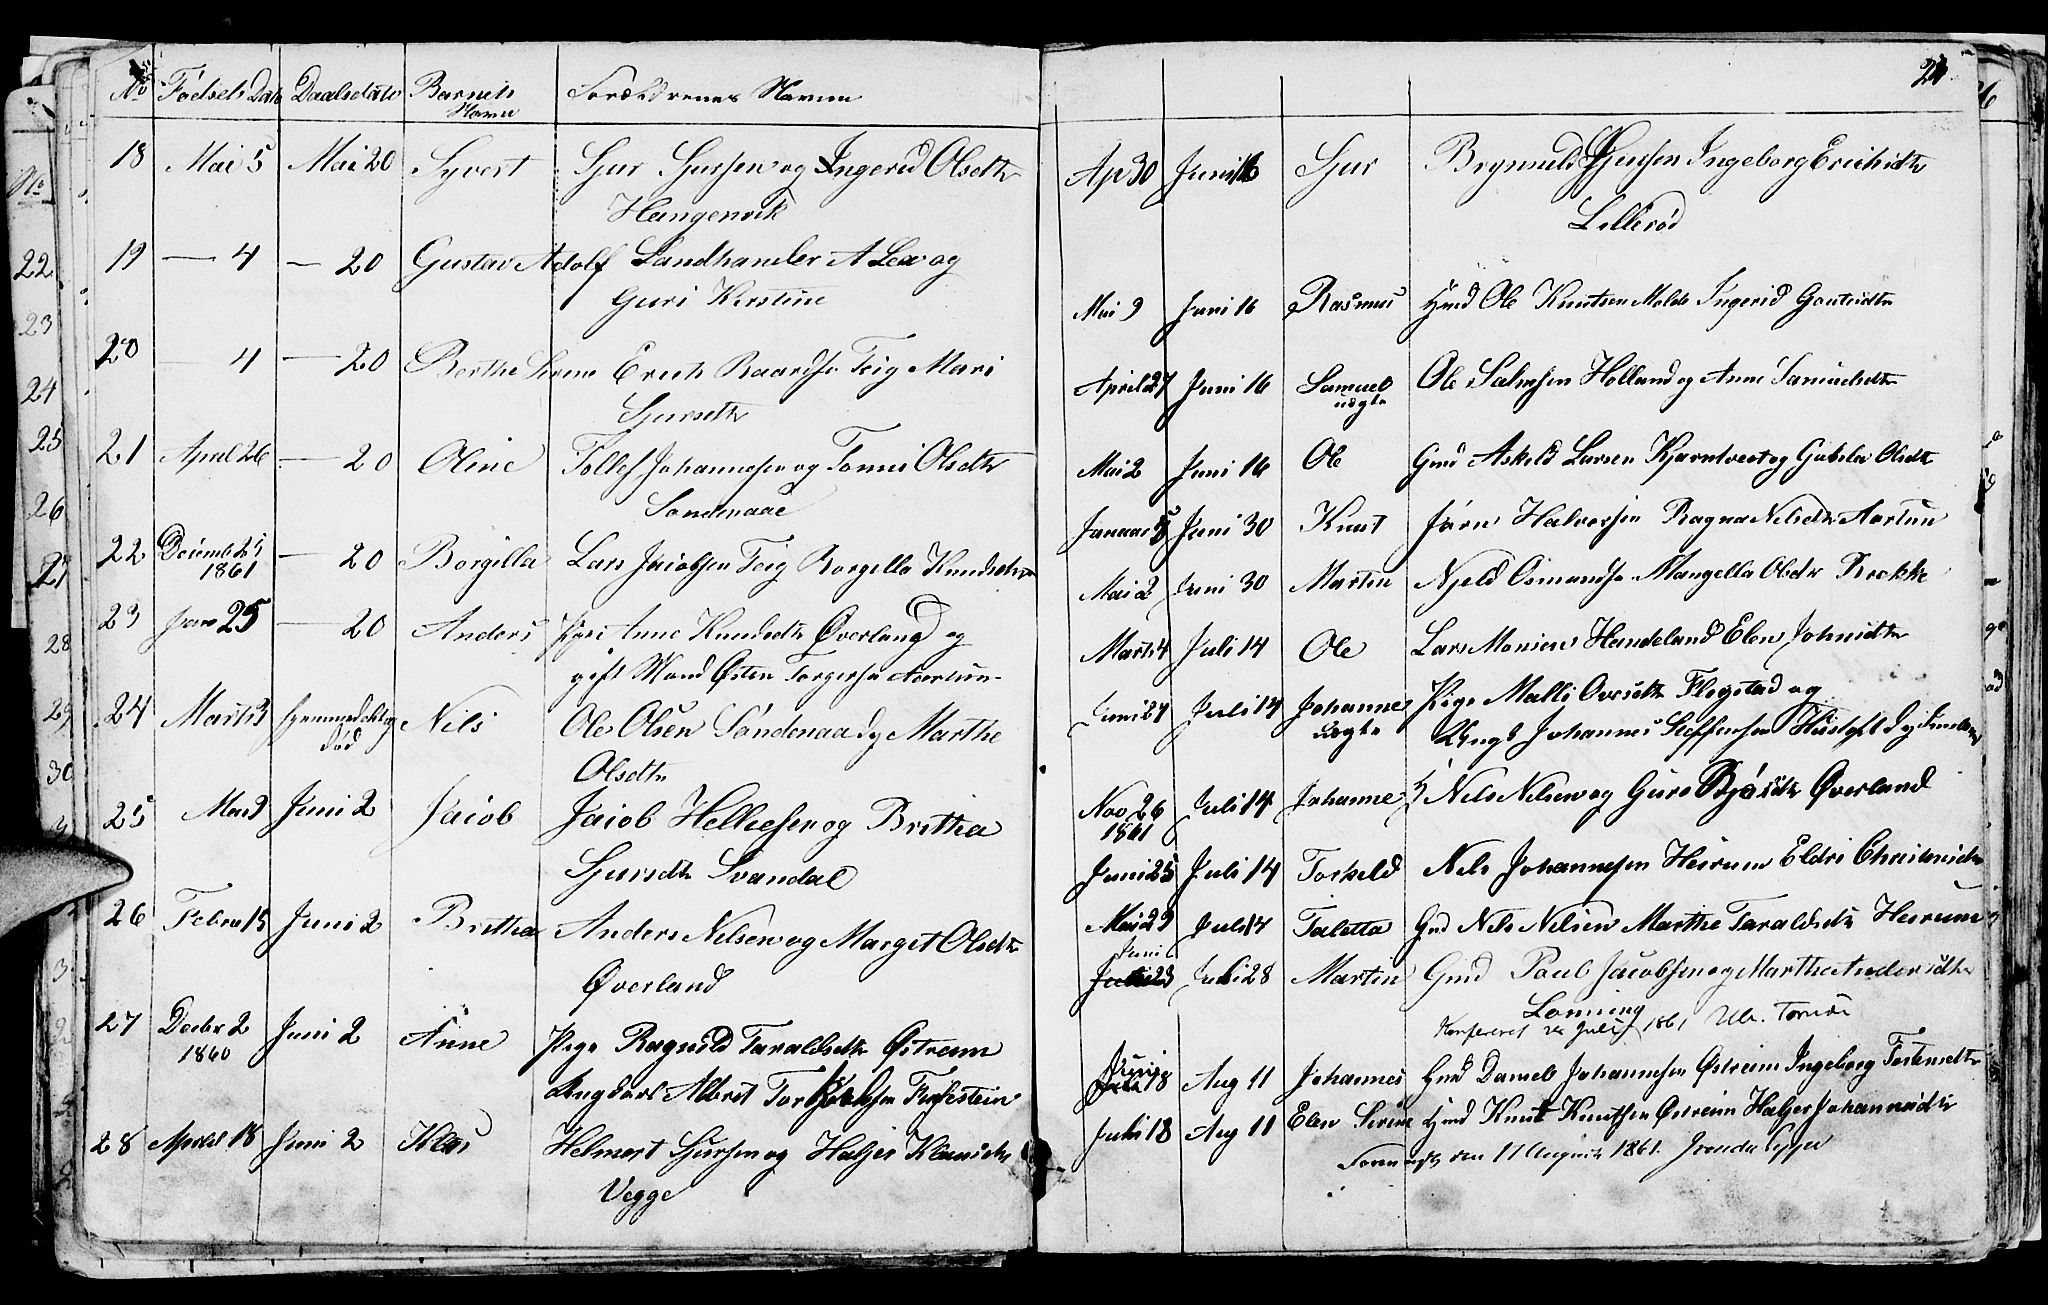 No Fødsels Dato Daabsdato Barnets Forældrenes Navne
Navn
18 Mai 5 Mai 20 Syvert Sjur Sjursen og Ingerid Olsdtr
Hangenvik
19 — 4 — 20 Gustav Adolf Landhandler A Lea og
Guri Kirstine
20 — 4 — 20 Berthe Serine Erich Baardsn Teig Mari
Sjursdtr
21 April 26 — 20 Oline Tollef Johannesen og Tomine Olsdtr
Søndenaae
22 Decemb 25 — 20 Borgilla Lars Jacobsen Teig Borgilla Knudsdtr
1861
23 Janr 25 — 20 Anders Pige Anne Knudsdtr Øverland og
gift Mand Østen Torgersn Aartun
24 Marts 3 hjemmedøbt og Nils Ole Olsen Søndenaa og Marthe
død
Olsdtr
25 Mai 9 Juni 2 Jacob Jacob Helliesen og Brithe
Sjursdtr Svandal
26 Febru 15 Juni 2 Brithe Anders Nilsen og Marget Olsdtr
Øverland
27 Decbr 2 Juni 2 Anne Pige Ragnild Taraldsdtr Østreim
1860
Ungkarl Albret Torkildsen Træfestein
28 April 18 Juni 2 Klas Helmert Sjursen og Haljer Klausdtr
Vegge
24
Ap 30 Juni 16 Sjur Brynnild Sjursen Ingeborg Erichsdtr
Lillerød
Mai 9 Juni 16 Rasmus Hmd Ole Knutsen Molde Ingerid Gautesdtr
April 27 Juni 16 Samuel Ole Salmsen Holland og Anne Samuelsdtr
uægte
Mai 2 Juni 16 Ole Gmd Askeld Larsen Kjærntveet og Gabela Olsdtr
Januar 5 Juni 30 Knut Jørn Halvorsen Ragna Nilsdtr Aartun
Mai 2 Juni 30 Martin Njeld Osmundsn Mangella Olsdtr Brekke
Marts 4 Juli 14 Ole Lars Monsen Handeland Elen Johnsdtr
Juni 27 Juli 14 Johannes Pige Malli Oversdtr Flogstad og
uægte Ungk Johannes Steffensen
Nov 26 Juli 14 Johannes Nils Nilsen og Guro Øverland
1861
Juni 25 Juli 14 Torkeld Nils Johannesen Heirum Eldri
Mai 29 Juli 14 Taletta Gmd Nils Nilsen Marthe Taraldsdtr Heirum
Juni
Juli 23 Juli 28 Martin Gmd Poul Jacobsen og Marthe Andersdtr
Lonning
Konfereret Juli 1861
Juni
Juli 18 Aug 11 Johannes Gmd Daniel Johannesen Østreim Ingeborg Tostensdtr
Juli 18 Aug 11 Elen Serine Hmd Knut Knutsen Østreim Haljer Johannesdtr
den 11 August 1861.
26
No
22
23
24
25
26
27
28
29
30